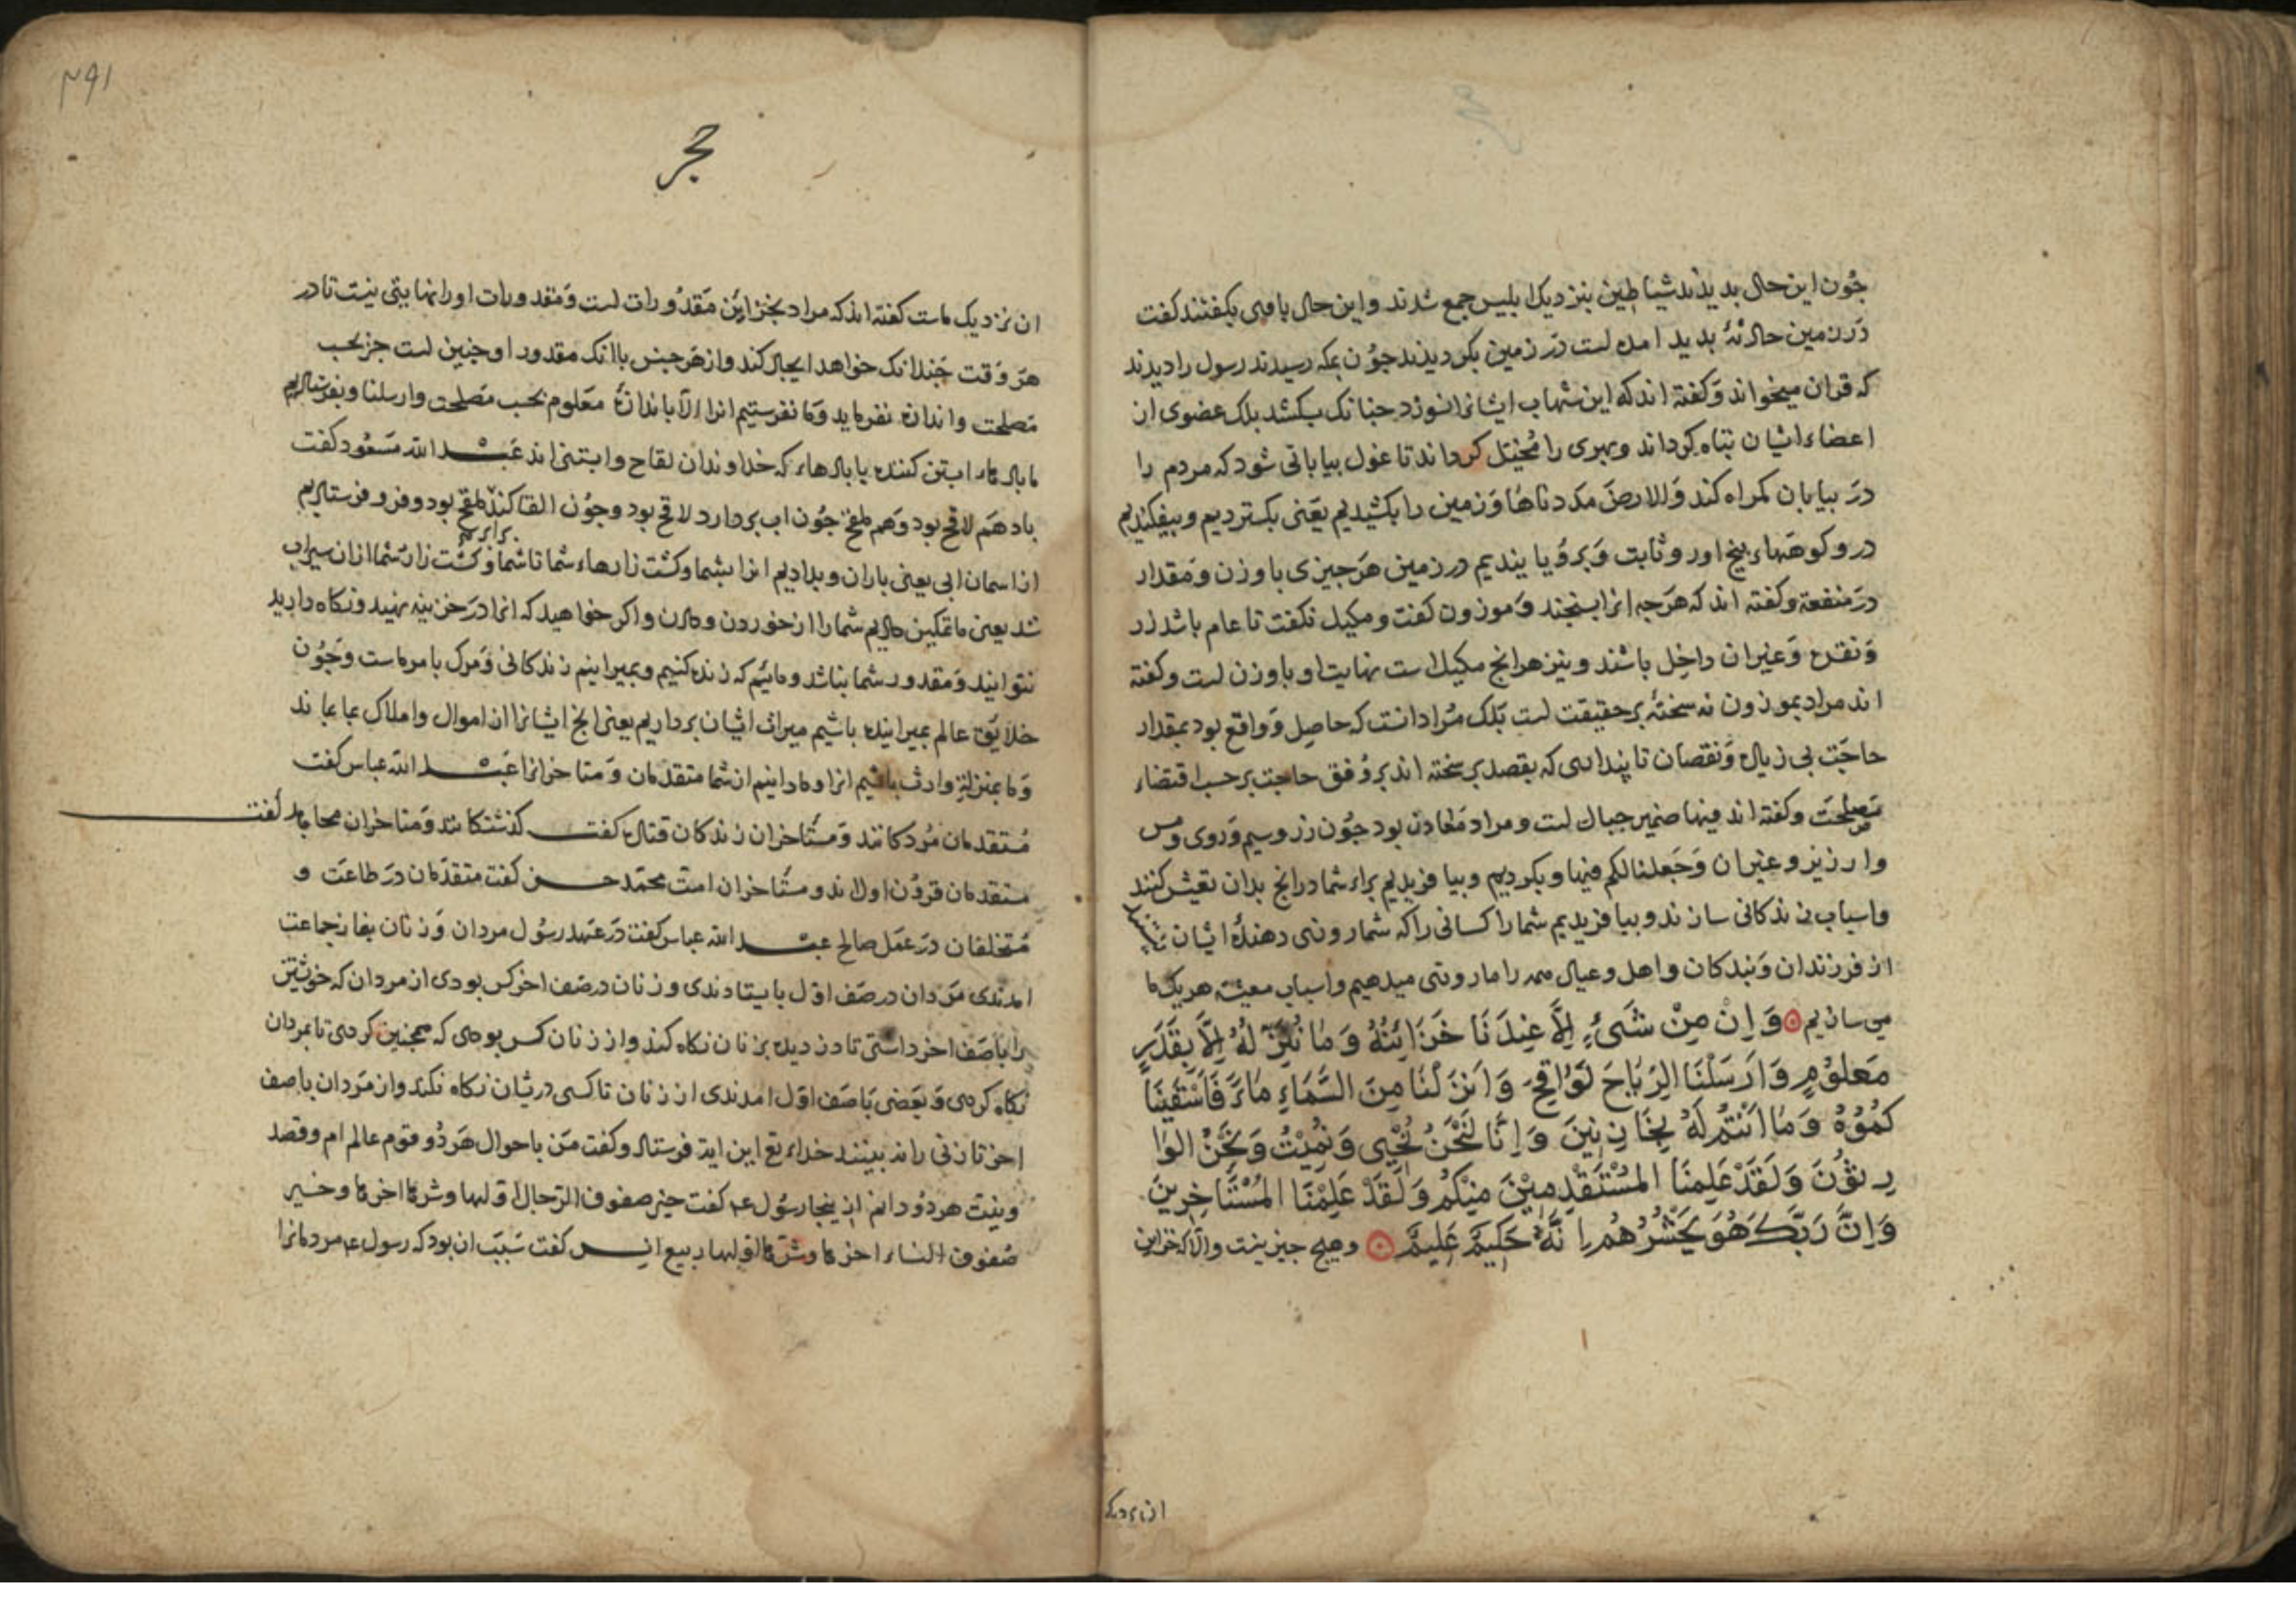 جون این حال بدیذند شیاطین بنزدیک ابلیس جمع شدند و این حال با وی بکفتند کفت
در زمین حادثۀ بدید امده است در زمین بکردیذند جون بمکه رسیدند رسول را دیدند
که قران میخواند و کفته اند که این شهاب ایشانرا نسوزد جنانک بکشد بلک عضوی از
اعضاء ایشان تباه کرداند و بهری را مختبل کرداند تا غول بیابانی شود که مردم را
در بیابان کمراه کند والارض مددناها و زمین را بکشیدیم یعنی بکستردیم و بیفکندیم
درو کوههاء بیخ اور و ثابت و برویایندیم در زمین هر جیزی با وزن و مقدار
در منفعة و کفته اند که هرجه انرا بسنجند و موزون کفت و مکیل نکفت تا عام باشد زر
و نقره و غیر ان داخل باشند و نیز هر انج مکیل است نهایت او با وزن است و کفته
اند مراد بموزون نه سختۀ بر حقیقت است بلک مراد انست که حاصل و واقع بود بمقدار
حاجت بی زیاده و نقصان تا پنداری که بقصد بر سخته اند بر وفق حاجت بر حسب اقتضاء
مصلحت و کفته اند فیها ضمیر جبال است و مراد معادن بود جون زر و سیم و روی و مس
و ارزیز و غیر ان وجعلنا لکم فیها و بکردیم و بیافریدیم براء شما در انج بدان تعیش کنند
و اسباب زندکانی سازند و بیافریدیم شما را کسانی را که شما روزی دهندۀ ایشان نیستید
از فرزندان و بندکان و اهل و عیال همه را ما روزی میدهیم و اسباب معیشة هریک ما
می سازیم وَاِنْ مِنْ شَیْءٍ اِلَّا عِنْدَنَا خَزَائِنُهُ وَمَا نُنَزِّلُهُ اِلَّا بِقَدَرٍ
مَعْلُوْمٍ وَاَرْسَلْنَا الرِّیَاحَ لَوَاقِحَ وَاَنْزَلْنَا مِنَ السَّمَاءِ مَاءً فَاَسْقَیْنَا
کُمُوْهُ وَمَا اَنْتُمْ لَهُ بِخَازِنِیْنَ وَاِنَّا لَنَحْنُ نُحْیِی وَنُمِیْتُ وَنَحْنُ الْوَا
رِثُوْنَ وَلَقَدْ عَلِمْنَا الْمُسْتَقْدِمِیْنَ مِنْکُمْ وَلَقَدْ عَلِمْنَا الْمُسْتَاخِرِیْنَ
وَاِنَّ رَبَّکَ هُوَ یَحْشُرُهُمْ اِنَّهُ حَکِیْمٌ عَلِیْمٌ و هیج جیز نیست والا که خزاین
ان نزدیک
۳۹۱
حجر
ان نزدیک ماست کفته اند که مراد بخزاین مقدورات است و مقدورات او را نهایتی نیست تا در
هر وقت جندانک خواهد ایجاد کند و از هر جنس با انک مقدور او جنین است جز بحسب
مصلحت و اندازه نفرماید و ما نفرستیم انرا الا باندازۀ معلوم بحسب مصلحت وارسلنا و بفرستادیم
ما بادهاء ابستن کننده یا بادهاء که خداوندان لقاح و ابستنی اند عبد الله مسعود کفت
باد هم لاقح بود و هم ملقح جون اب بردارد لاقح بود و جون القا کند ملقح بود و فرو فرستادیم
از اسمان ابی یعنی باران و بدادیم انرا بشما و کشت زارهاء شما تا شما و کشت زار شما ازان سیراب
شد یعنی ما تمکین دادیم شما را از خوردن و دادن و اکر خواهید که انرا در خزینه نهید و نکاه دارید
نتوانید و مقدور شما نباشد و ماییم که زنده کنیم و بمیرانیم زندکانی و مرک با مر ماست و جون
خلایق عالم بمیرانیده باشیم میراث ایشان برداریم یعنی انج ایشانرا از اموال و املاک بما بماند
و ما بمنزلۀ وارث باشیم انرا و ما دانیم از شما متقدمان و متاخرانرا عبد الله عباس کفت
مستقدمان مردکانند و مستاخران زندکان قتاده کفت کذشتکانند و متاخران مجاهد کفت
مستقدمان قرون اول اند و مستاخران امت محمد حسن کفت متقدمان در طاعت و
متخلفان در عمل صالح عبد الله عباس کفت در عهد رسول مردان و زنان بنماز جماعت
امدندی مردان در صف اول بایستادندی و زنان در صف اخر کس بودی از مردان که خویشتن
را با صف اخر داشتی تا دزدیده بزنان نکاه کند و از زنان کس بودی که همجنین کردی تا بمردان
نکاه کردی و بعضی با صف اول امدندی از زنان تا کسی دریشان نکاه نکند و از مردان با صف
اخر تا زنی را نه بینند خداء تع این ایة فرستاد و کفت من باحوال هر دو قوم عالم ام و قصد
و نیت هر دو دانم ازینجا رسول عم کفت خیر صفوف الرجال اولها وشرها اخرها وخیر
صفوف النساء اخرها وشرها اولها ربیع انس کفت سبب ان بود که رسول عم مردمانرا